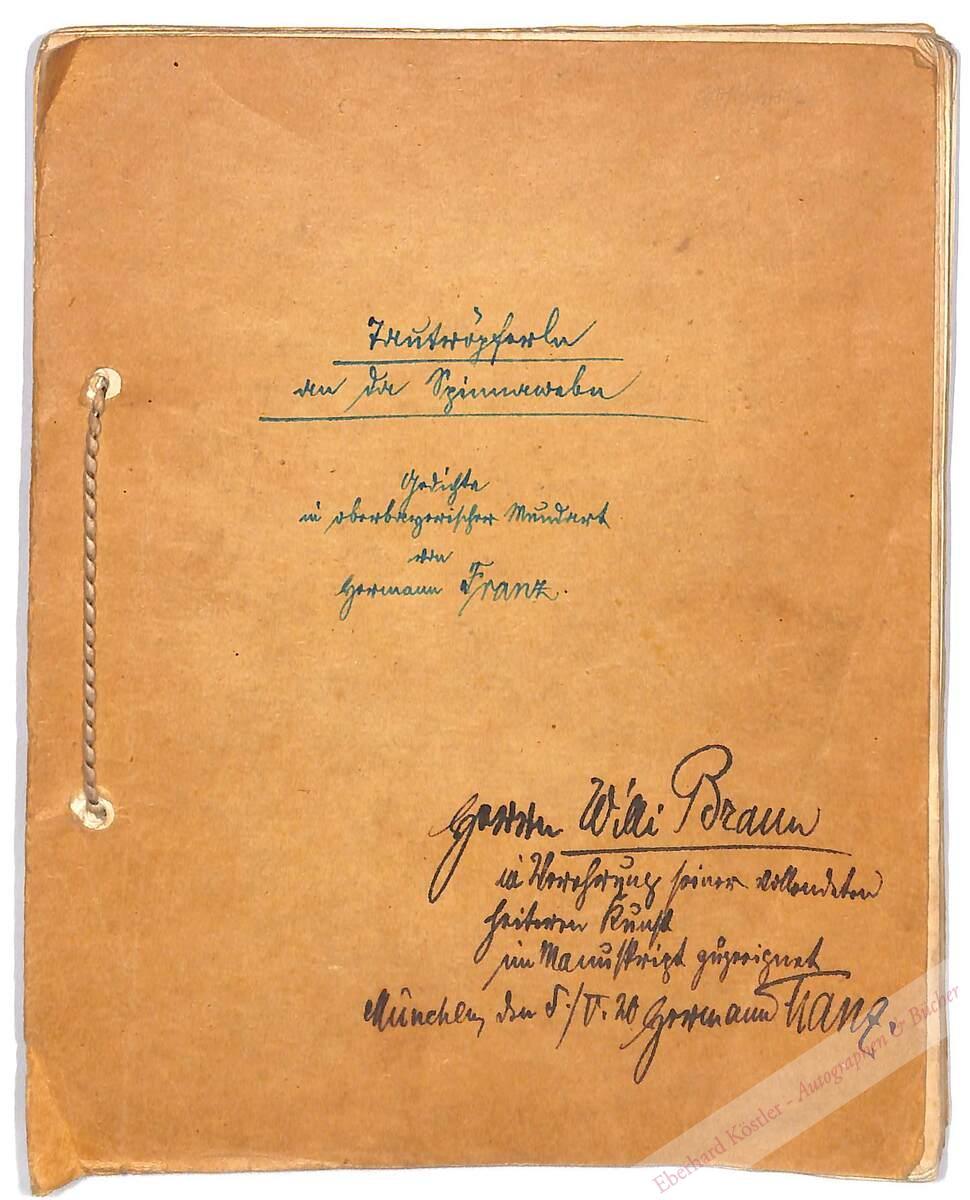 Tautröpferln
an da Spinnawebn
Gedichte
in oberbayerischer Mundart
von
Hermann Franz.
Herrn Willi Braun
in Verehrung seiner vollendeten
heiteren Kunst
im Manuskript zugeeignet
München, den 5./V. 20 Hermann Franz.
Eberhard Köstler - Autographen & Bücher